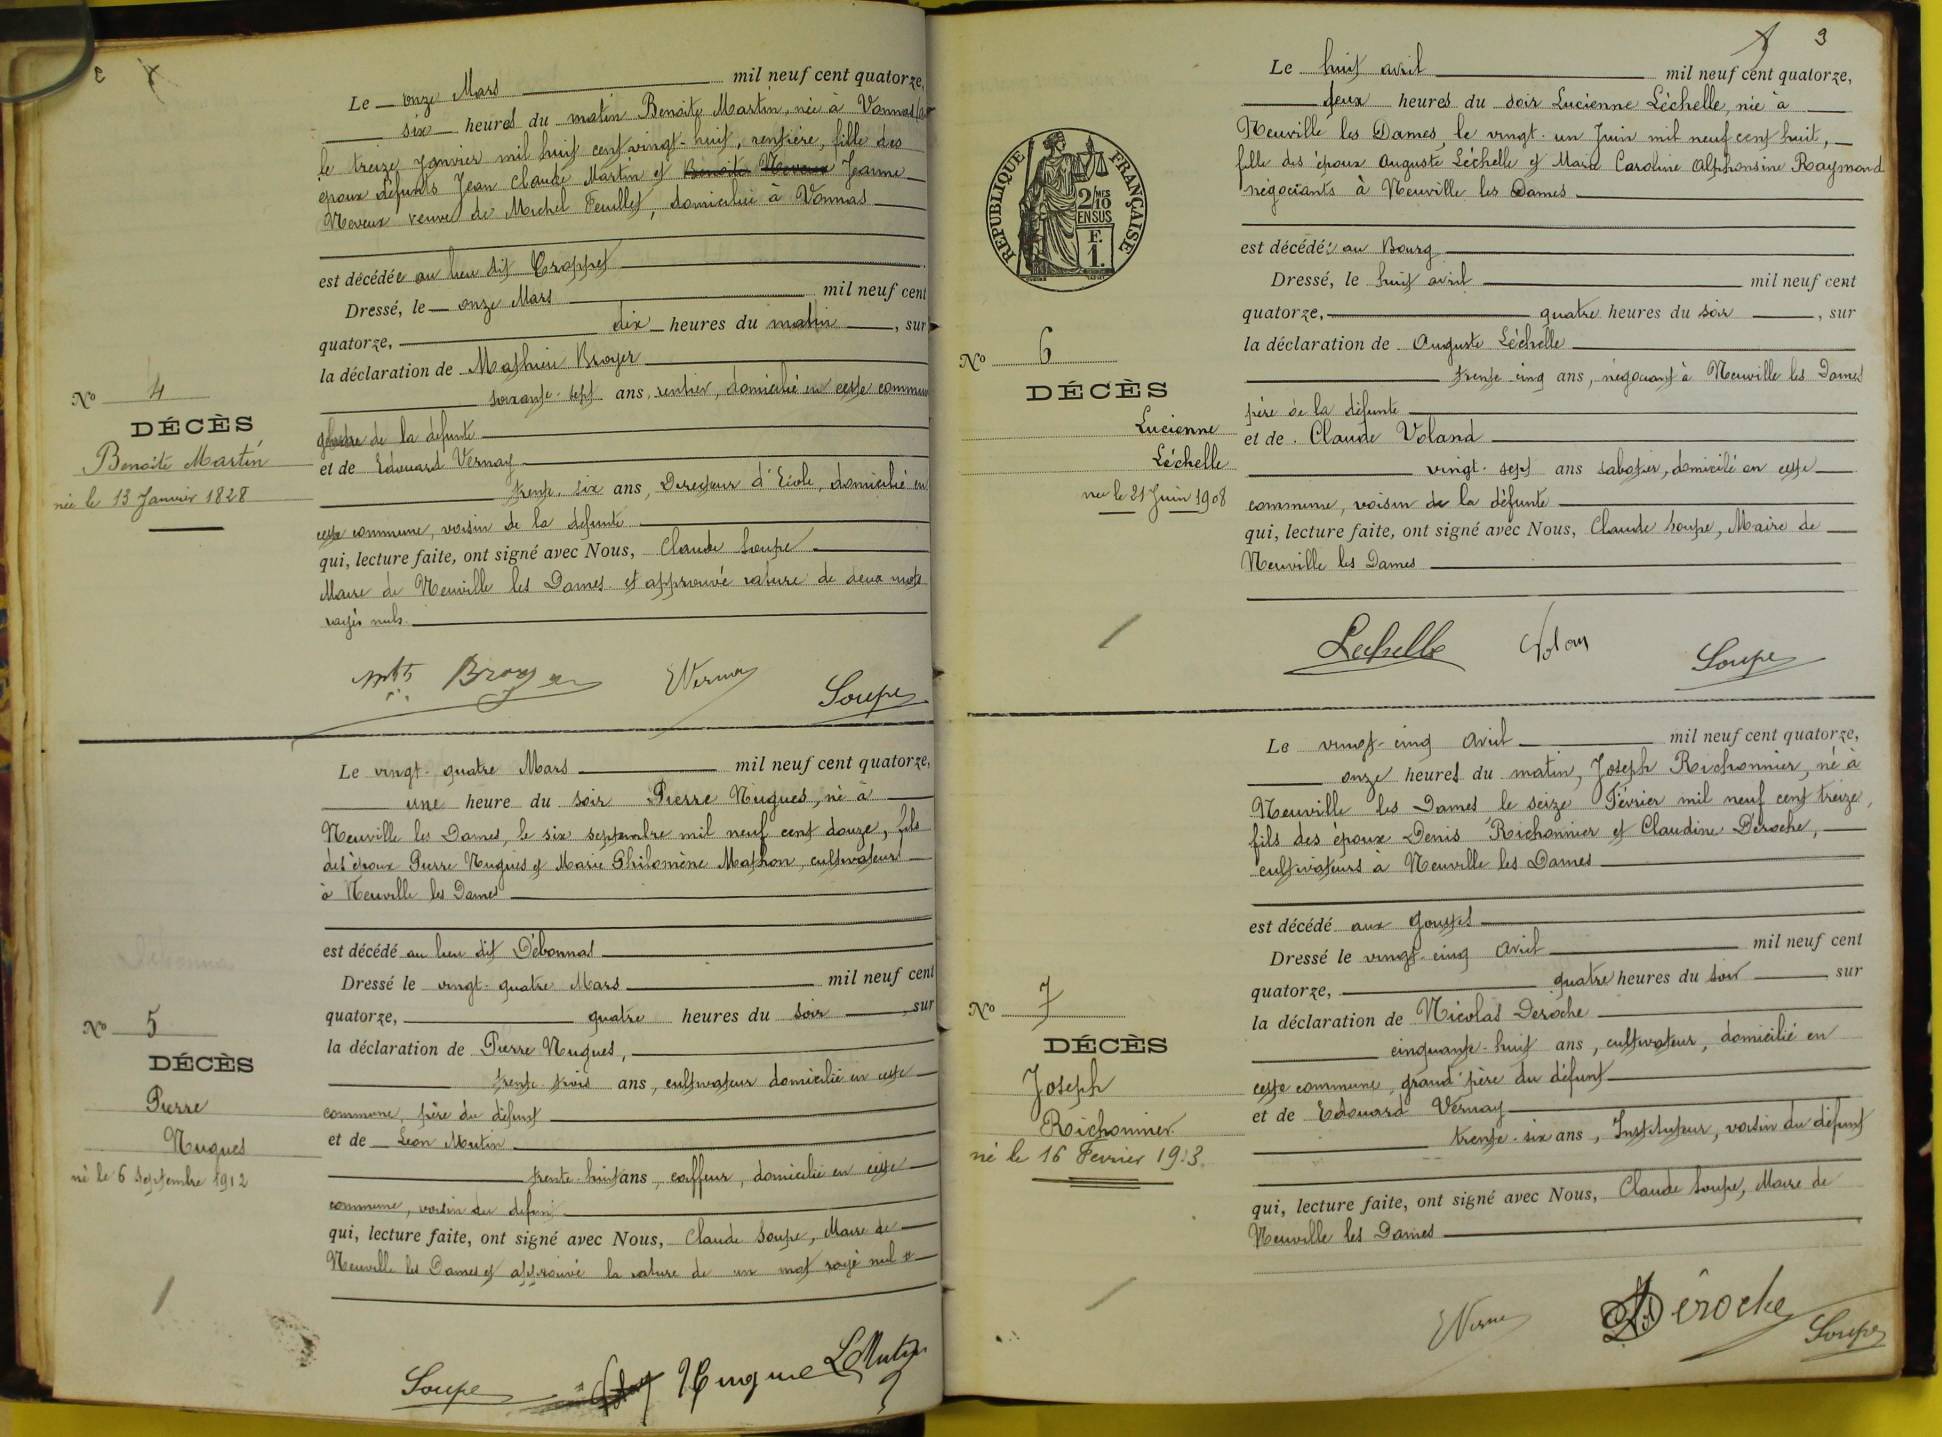 Le onze Mars mil neuf cent quatorze,
six heures du matin Benoite Martin, née à Vonnas
le treize Janvier mil huit cent vingt-huit, rentière, fille des
époux défunts Jean Claude Martin et Benoite Neveux Jeanne
Neveux veuve de Michel Feuillet, domiciliée à Vonnas
est décédée au lieu dit Croppet
Dressé, le onze Mars mil neuf cent
quatorze, dix heures du matin, sur
la déclaration de Mathieu Broyer
soixante-sept ans, rentier, domicilié en cette commune
gendre de la défunte
et de Edouard Vernay
trente-six ans, Directeur d'Ecole, domicilié en
cette commune, voisin de la défunte
qui, lecture faite, ont signé avec Nous, Claude Soupe
Maire de Neuville les Dames et approuvé rature de deux mots
rayés nuls.
No 4
DÉCÈS
Benoite Martin
née le 13 Janvier 1828
Broyer
EVernay
Soupe
Le vingt-quatre Mars mil neuf cent quatorze,
une heure du soir Pierre Nugues, né à
Neuville les Dames, le six septembre mil neuf cent douze, fils
des époux Pierre Nugues et Marie Philomène Mathon, cultivateurs
à Neuville les Dames
est décédé au lieu dit Débonnas
Dressé le vingt-quatre Mars mil neuf cent
quatorze, quatre heures du soir, sur
la déclaration de Pierre Nugues,
trente-trois ans, cultivateur domicilié en cette
commune, père du défunt
et de Léon Mutin
trente-huit ans, coiffeur, domicilié en cette
commune, voisin du défunt
qui, lecture faite, ont signé avec Nous, Claude Soupe, Maire de
Neuville les Dames et approuvé la rature de un mot rayé nul
No 5
DÉCÈS
Pierre
Nugues
né le 6 Septembre 1912
Soupe
Nugues
LMutin
3
Le huit avril mil neuf cent quatorze,
deux heures du soir Lucienne Léchelle, née à
Neuville les Dames, le vingt-un Juin mil neuf cent huit,
fille des époux Auguste Léchelle et Maria Caroline Alphonsine Raymond
négociants à Neuville les Dames
est décédée au Bourg
Dressé, le huit avril mil neuf cent
quatorze, quatre heures du soir, sur
la déclaration de Auguste Léchelle
trente-cinq ans, négociant à Neuville les Dames
père de la défunte
et de Claude Voland
vingt-sept ans sabotier, domicilié en cette
commune, voisin de la défunte
qui, lecture faite, ont signé avec Nous, Claude Soupe, Maire de
Neuville les Dames
RÉPUBLIQUE FRANÇAISE
2/10 MES
EN SUS
F.
1.
No 6
DÉCÈS
Lucienne
Léchelle
née le 21 Juin 1908
Lechelle
Soupe
Le vingt-cinq Avril mil neuf cent quatorze,
onze heures du matin, Joseph Richonnier, né à
Neuville les Dames le seize Février mil neuf cent treize,
fils des époux Denis Richonnier et Claudine Déroche,
cultivateurs à Neuville les Dames
est décédé aux Gouttes
Dressé le vingt-cinq Avril mil neuf cent
quatorze, quatre heures du soir sur
la déclaration de Nicolas Deroche
cinquante-huit ans, cultivateur, domicilié en
cette commune, grand'père du défunt
et de Edouard Vernay
trente-six ans, Instituteur, voisin du défunt
qui, lecture faite, ont signé avec Nous, Claude Soupe, Maire de
Neuville les Dames
No 7
DÉCÈS
Joseph
Richonnier
né le 16 Fevrier 1913.
EVernay
Déroche
Soupe